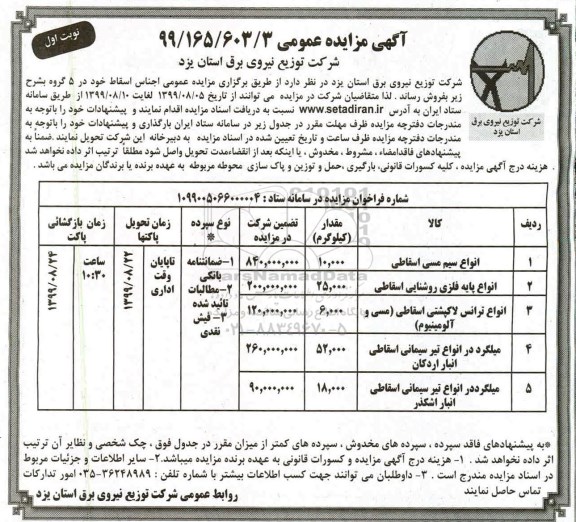 نوبت اول
آگهی مزایده عمومی ۹۹/۱۶۵/۶۰۳/۳
شرکت توزیع نیروی برق استان یزد
شرکت توزیع نیروی برق
استان یزد
شرکت توزیع نیروی برق استان یزد در نظر دارد از طریق برگزاری مزایده عمومی اجناس اسقاط خود در ۵ گروه بشرح
زیر بفروش رساند . لذا متقاضیان شرکت در مزایده می توانند از تاریخ ۱۳۹۹/۰۸/۰۵ لغایت ۱۳۹۹/۰۸/۱۰ از طریق سامانه
ستاد ایران به آدرس www.setadiran.ir نسبت به دریافت اسناد مزایده اقدام نمایند و پیشنهادات خود را باتوجه به
مندرجات دفترچه مزایده ظرف مهلت مقرر در جدول زیر در سامانه ستاد ایران بارگذاری و پیشنهادات خود را باتوجه به
مندرجات دفترچه مزایده ظرف ساعت و تاریخ تعیین شده در اسناد مزایده به دبیرخانه این شرکت تحویل نمایند.ضمناً به
پیشنهادهای فاقدامضاء ، مشروط ، مخدوش ، یا اینکه بعد از انقضاءمدت تحویل واصل شود مطلقاً ترتیب اثر داده نخواهد شد
. هزینه درج آگهی مزایده ، کلیه کسورات قانونی، بارگیری ،حمل و توزین و پاک سازی محوطه مربوطه به عهده برنده یا برندگان مزایده می باشد .
شماره فراخوان مزایده در سامانه ستاد : ۱۰۹۹۰۰۵۰۶۶۰۰۰۰۰۴
ردیف کالا مقدار (کیلوگرم) تضمین شرکت در مزایده نوع سپرده * زمان تحویل پاکتها زمان بازگشائی پاکت
۱ انواع سیم مسی اسقاطی ۱۰,۰۰۰ ۸۴۰,۰۰۰,۰۰۰ ۱-ضمانتنامه بانکی ۲-مطالبات تائید شده ۳- فیش نقدی تاپایان وقت اداری ۱۳۹۹/۰۸/۲۲ ساعت ۱۰:۳۰ ۱۳۹۹/۰۸/۲۴
۲ انواع پایه فلزی روشنایی اسقاطی ۲۵,۰۰۰ ۲۰۰,۰۰۰,۰۰۰
۳ انواع ترانس لاکپشتی اسقاطی (مسی و آلومینیوم) ۶,۰۰۰ ۱۲۰,۰۰۰,۰۰۰
۴ میلگرد در انواع تیر سیمانی اسقاطی انبار اردکان ۵۲,۰۰۰ ۲۶۰,۰۰۰,۰۰۰
۵ میلگرددر انواع تیر سیمانی اسقاطی انبار اشکذر ۱۸,۰۰۰ ۹۰,۰۰۰,۰۰۰
ParsNamadData
۰۲۱-۸۸۳۴۹۶۷۰-۵
*به پیشنهادهای فاقد سپرده ، سپرده های مخدوش ، سپرده های کمتر از میزان مقرر در جدول فوق ، چک شخصی و نظایر آن ترتیب
اثر داده نخواهد شد . ۱- هزینه درج آگهی مزایده و کسورات قانونی به عهده برنده مزایده میباشد.۲- سایر اطلاعات و جزئیات مربوط
در اسناد مزایده مندرج است . ۳- داوطلبان می توانند جهت کسب اطلاعات بیشتر با شماره تلفن : ۳۶۲۴۸۹۸۹-۰۳۵ امور تدارکات
تماس حاصل نمایند
روابط عمومی شرکت توزیع نیروی برق استان یزد